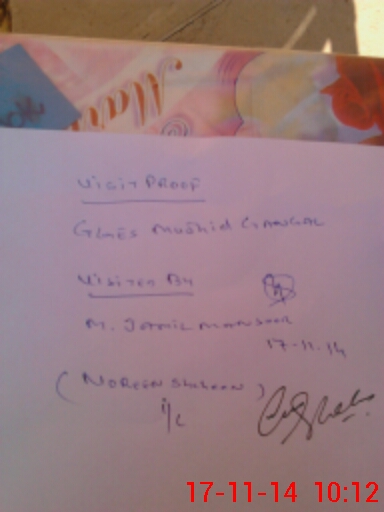 VISIT PROOF
GGES Murshid Gangal
VISITED BY
M. JAMIL MANSOOR
17-11-14
(NOREEN Shaheen)
I/C
17-11-14 10:12